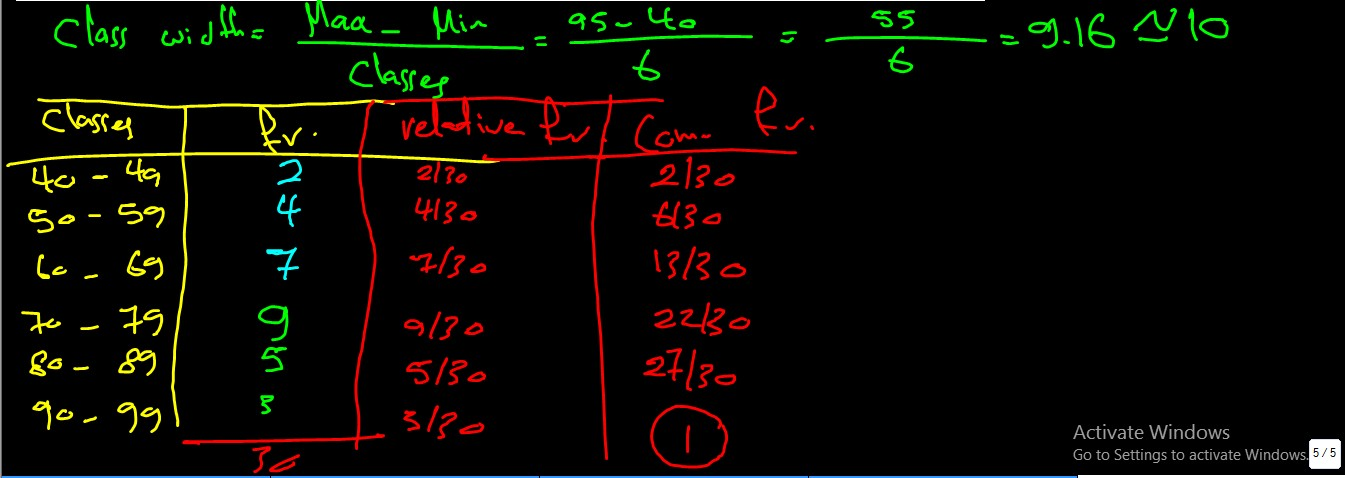 Class width = Max - Min / Classes = 95 - 40 / 6 = 55 / 6 = 9.16 ≃ 10
Classes | fr. | relative fr | Com. fr.
40 - 49 | 2 | 2/30 | 2/30
50 - 59 | 4 | 4/30 | 6/30
60 - 69 | 7 | 7/30 | 13/30
70 - 79 | 9 | 9/30 | 22/30
80 - 89 | 5 | 5/30 | 27/30
90 - 99 | 3 | 3/30 | 1
30
Activate Windows
Go to Settings to activate Windows.
5 / 5